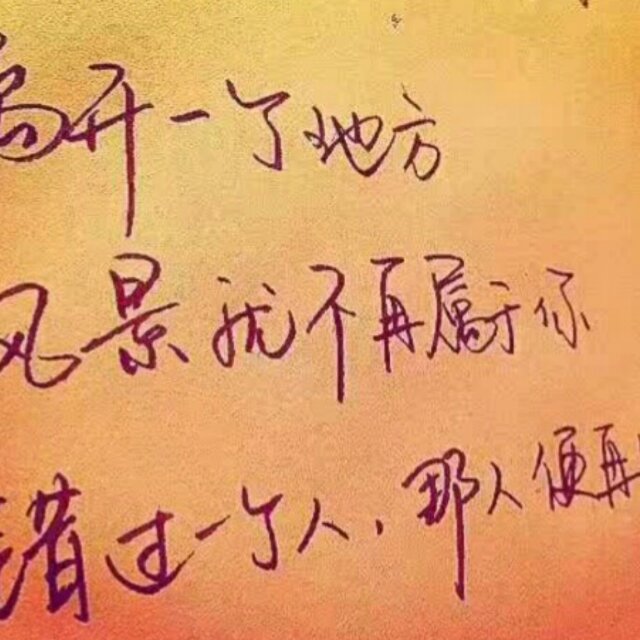 离开一个地方
风景就不再属于你
错过一个人,那人便再